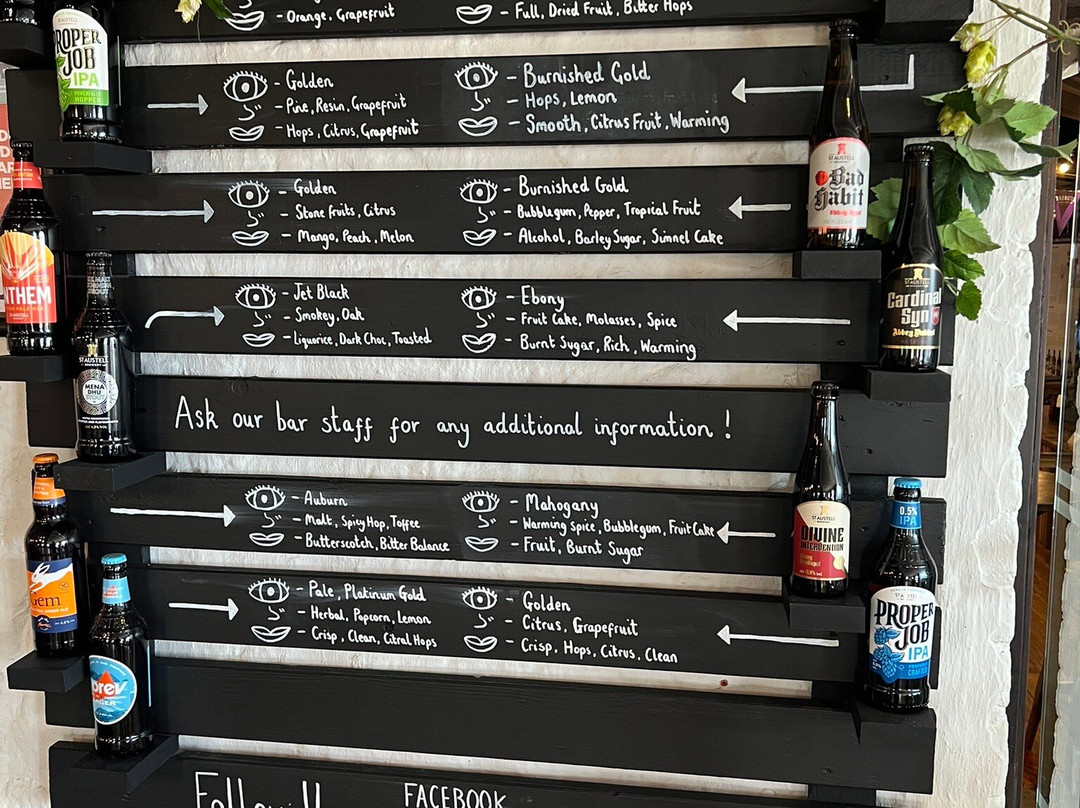 - Orange, Grapefruit
- Full, Dried Fruit, Bitter Hops
PROPER
JOB
IPA
POWERFULLY
HOPPED
- Golden
- Pine, Resin, Grapefruit
- Hops, Citrus, Grapefruit
- Burnished Gold
- Hops, Lemon
- Smooth, Citrus Fruit, Warming
ST AUSTELL
Bad
Habit
- Golden
- Stone fruits, Citrus
- Mango, Peach, Melon
- Burnished Gold
- Bubblegum, Pepper, Tropical Fruit
- Alcohol, Barley Sugar, Simnel Cake
NTHEM
- Jet Black
- Smokey, Oak
- Liquorice, Dark Choc, Toasted
- Ebony
- Fruit Cake, Molasses, Spice
- Burnt Sugar, Rich, Warming
ST AUSTELL
Cardinal
Syn
ST AUSTELL
MENA
DHU
STOUT
Ask our bar staff for any additional information!
- Auburn
- Malt, Spicy Hop, Toffee
- Butterscotch, Bitter Balance
- Mahogany
- Warming Spice, Bubblegum, Fruit Cake
- Fruit, Burnt Sugar
ST AUSTELL
DIVINE
INTERVENTION
0.5%
IPA
Gem
- Pale, Platinum Gold
- Herbal, Popcorn, Lemon
- Crisp, Clean, Citral Hops
- Golden
- Citrus, Grapefruit
- Crisp, Hops, Citrus, Clean
ST AUSTELL
PROPER
JOB
IPA
orev
AGER
FACEBOOK